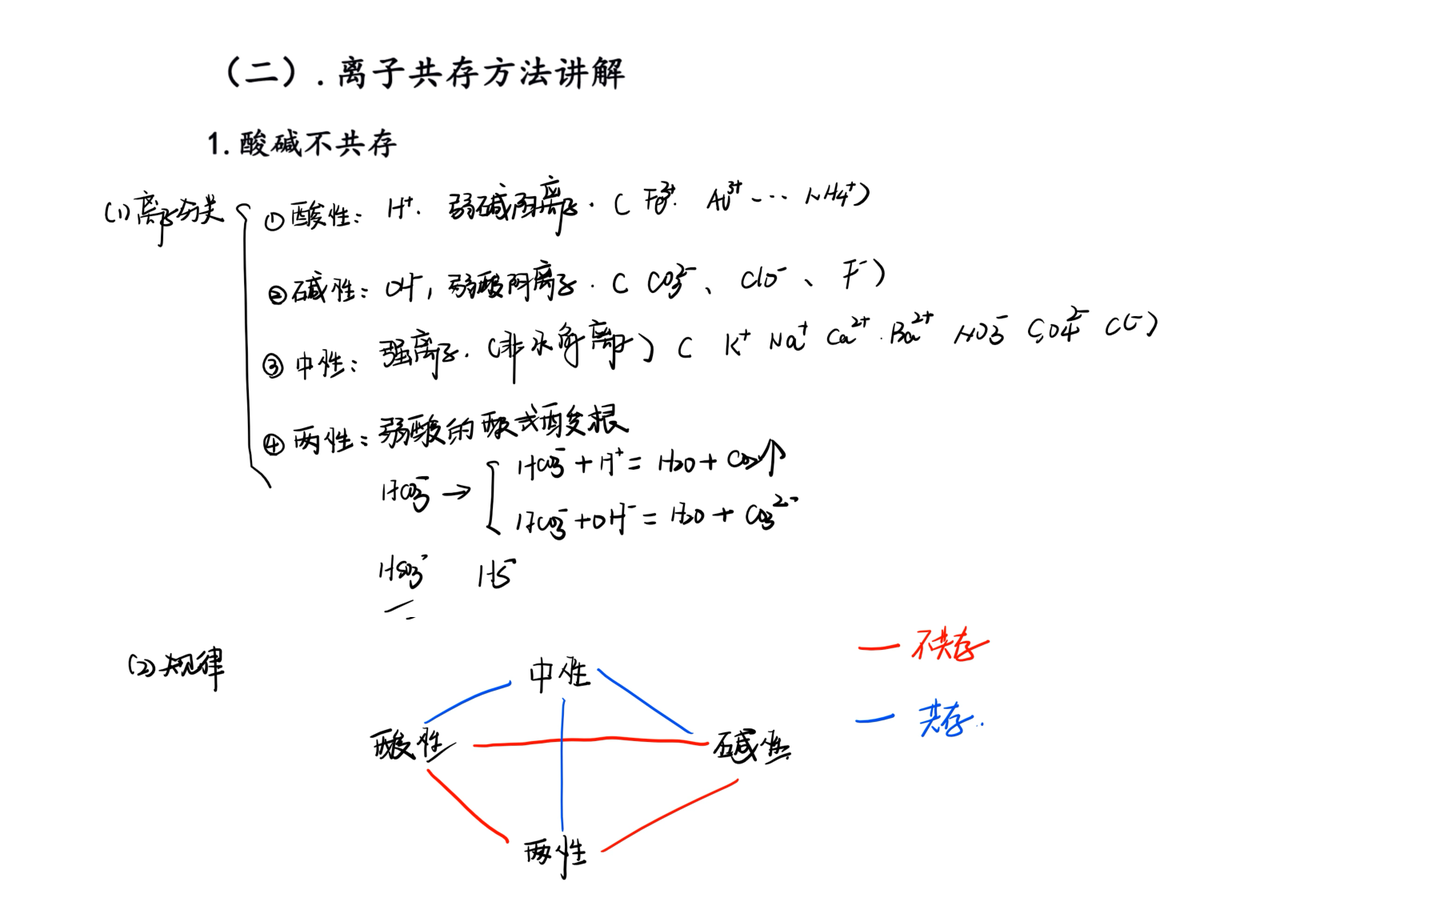 （二）.离子共存方法讲解
1.酸碱不共存
(1)离子分类
①酸性：H⁺. 弱碱阳离子.（Fe³⁺. Al³⁺… NH₄⁺）
②碱性：OH⁻, 弱酸阴离子.（CO₃²⁻、ClO⁻、F⁻）
③中性：强离子.（非水解离子）（K⁺ Na⁺ Ca²⁺.Ba²⁺ NO₃⁻ SO₄²⁻ Cl⁻）
④两性：弱酸的酸式酸根
HCO₃⁻→ HCO₃⁻+H⁺=H₂O+CO₂↑
HCO₃⁻+OH⁻=H₂O+CO₃²⁻
HSO₃⁻ HS⁻
(2)规律
— 不共存
中性
— 共存.
酸性 碱性
两性